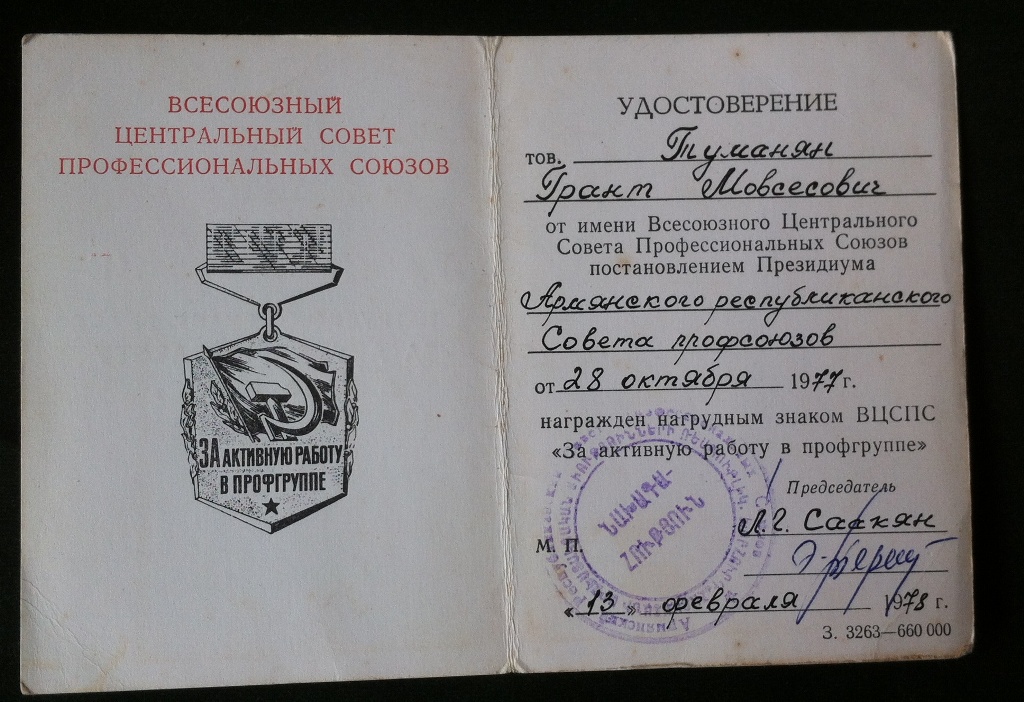 ВСЕСОЮЗНЫЙ
ЦЕНТРАЛЬНЫЙ СОВЕТ
ПРОФЕССИОНАЛЬНЫХ СОЮЗОВ
ЗА АКТИВНУЮ РАБОТУ
В ПРОФГРУППЕ
УДОСТОВЕРЕНИЕ
тов. Туманян
Грант Мовсесович
от имени Всесоюзного Центрального
Совета Профессиональных Союзов
постановлением Президиума
Армянского республиканского
Совета профсоюзов
от 28 октября 1977 г.
награжден нагрудным знаком ВЦСПС
«За активную работу в профгруппе»
Председатель
Л.Г. Саакян
ՆԱԽԱԳԱ-
ՀՈՒԹՅՈՒՆ
М. П.
«13» февраля 1978 г.
З. 3263—660 000